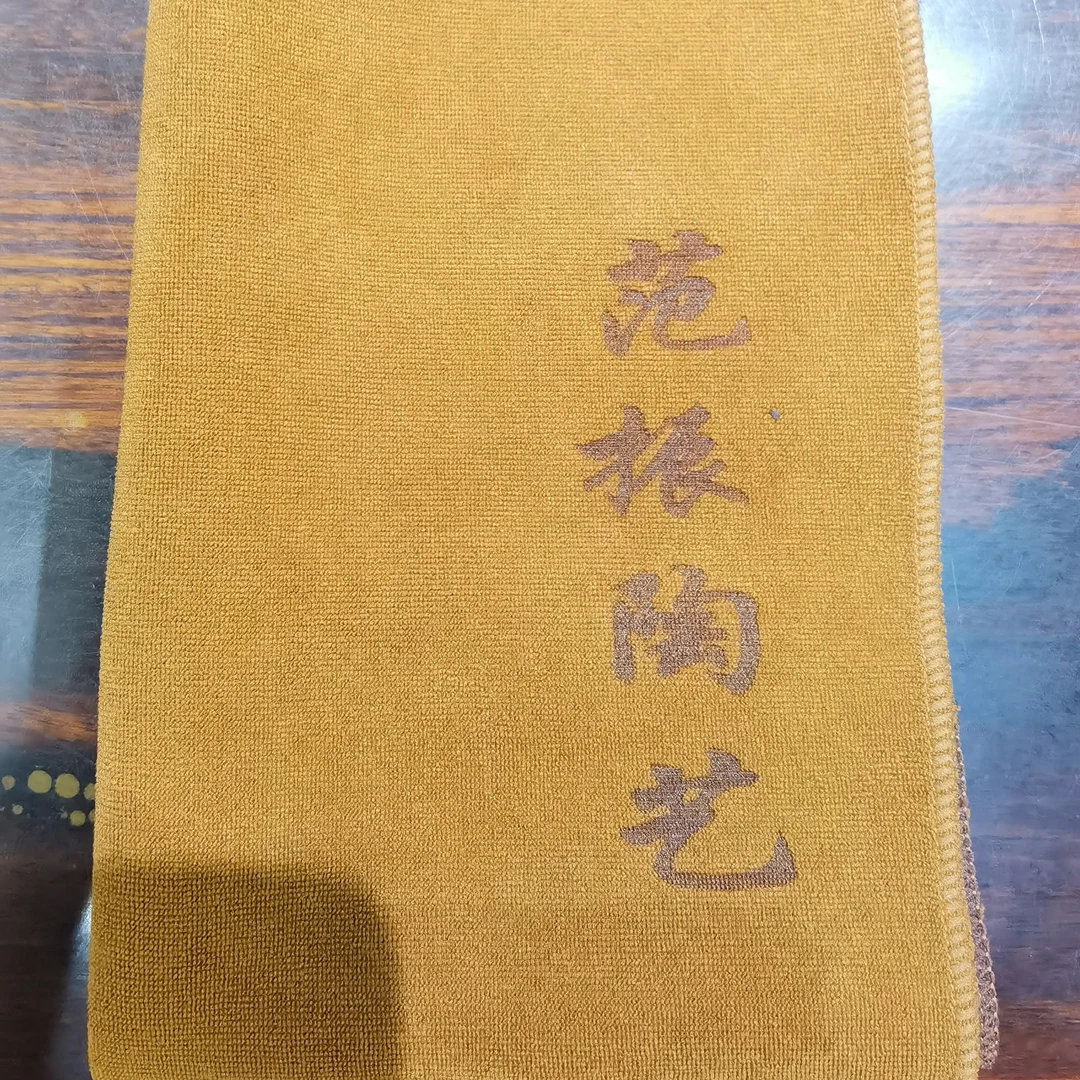 范振陶艺